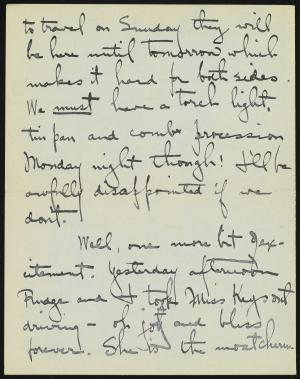 to travel on Sunday they will
be here until tomorrow which
makes it hard for both sides.
We must have a torch light,
tin pan and combs procession
Monday night though! I'll be
awfully disappointed if we
don't.
Well, one more bit of ex-
citement. Yesterday afternoon
Pudge and I took Miss Keys out
driving - oh joy and bliss
forever. She is the most charm-